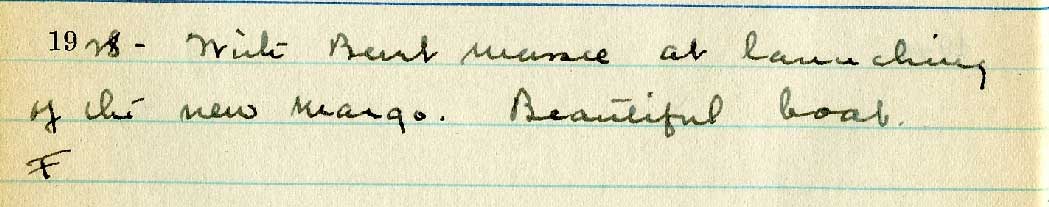 1928 - With Burt Massee at launching
of the new Margo. Beautiful boat.
F